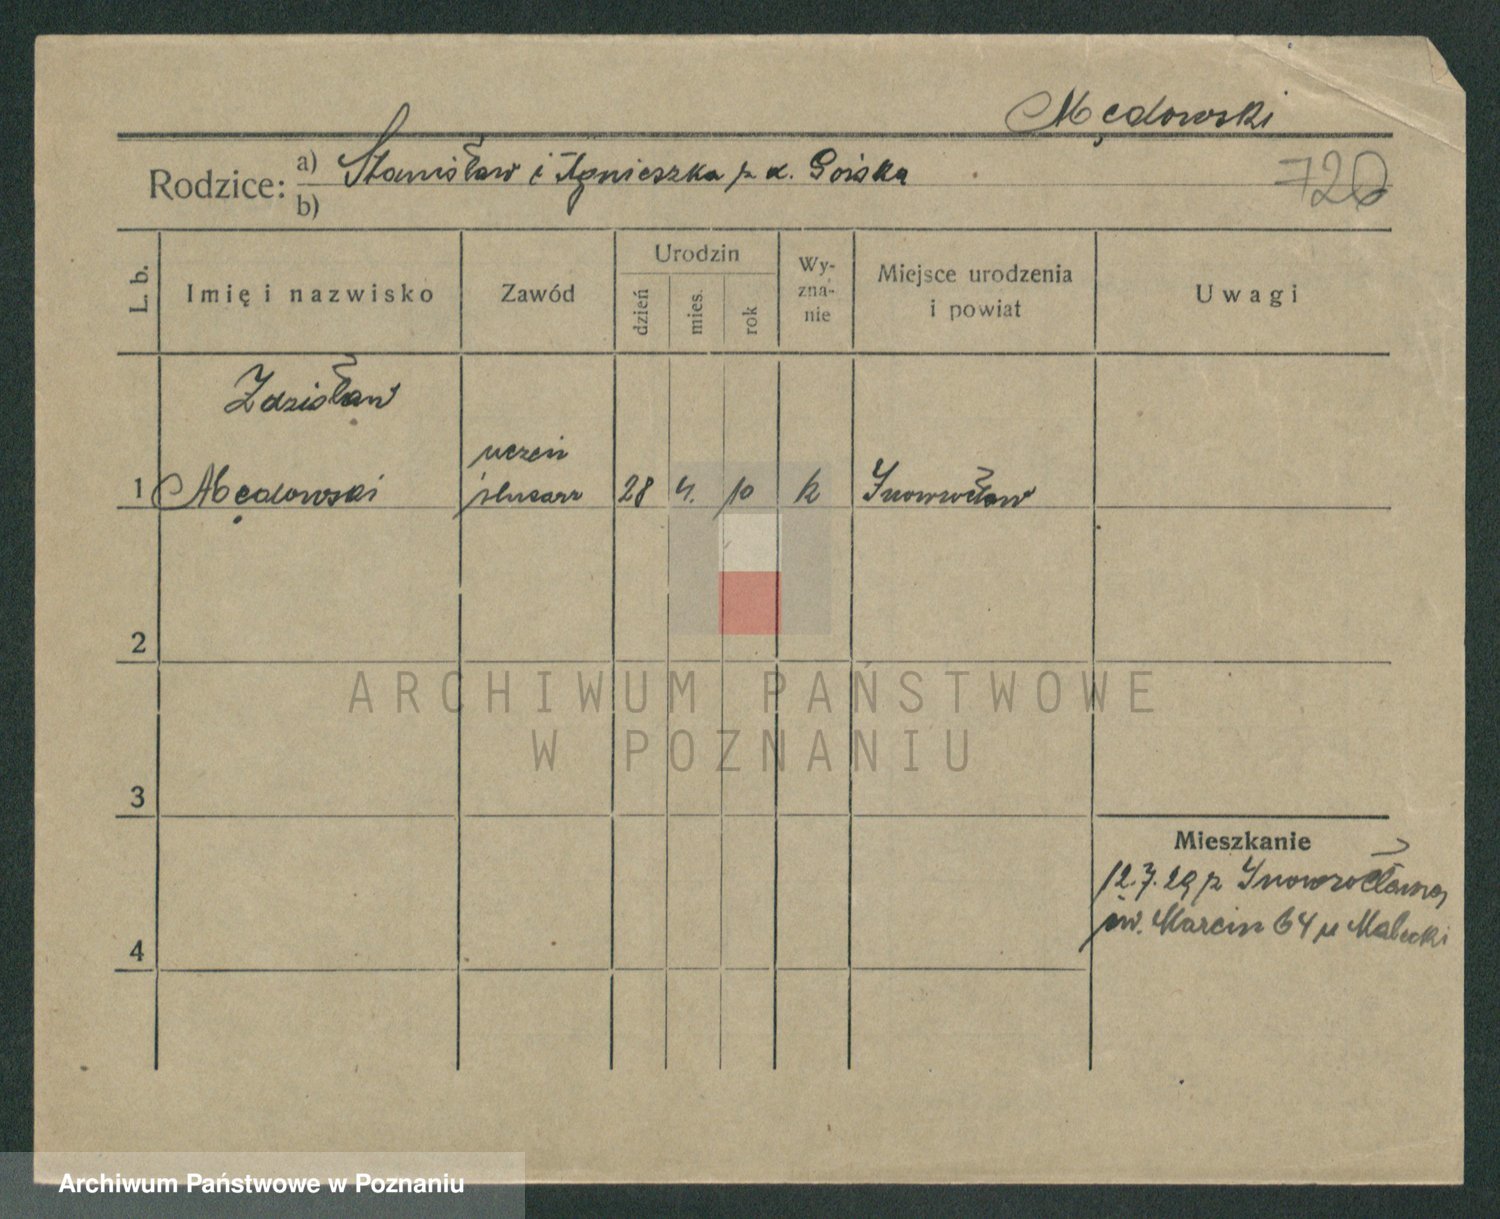 Mędowski
Rodzice: a) Stanisław i Agnieszka z d. Górska
b)
720
L. b.
Imię i nazwisko
Zawód
Urodzin
dzień
mies.
rok
Wy-
zna-
nie
Miejsce urodzenia
i powiat
Uwagi
Zdzisław
1 Mędowski
uczeń
ślusarz
28 4. 10 k Inowrocław
2
3
4
Mieszkanie
12.7.29 z Inowrocławia
św. Marcin 64 u Małecki
ARCHIWUM PAŃSTWOWE
W POZNANIU
Archiwum Państwowe w Poznaniu